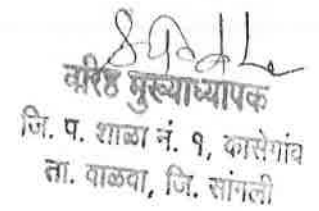 वरिष्ठ मुख्याध्यापक
जि. प. शाळा नं. १, कासेगांव
ता. वाळवा, जि. सांगली